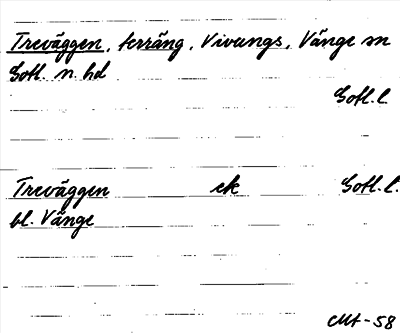 Treväggen, terräng, Vivungs, Vänge sn
Gotl. n. hd
Gotl. l.
Treväggen ek Gotl. l.
bl. Vänge
-58